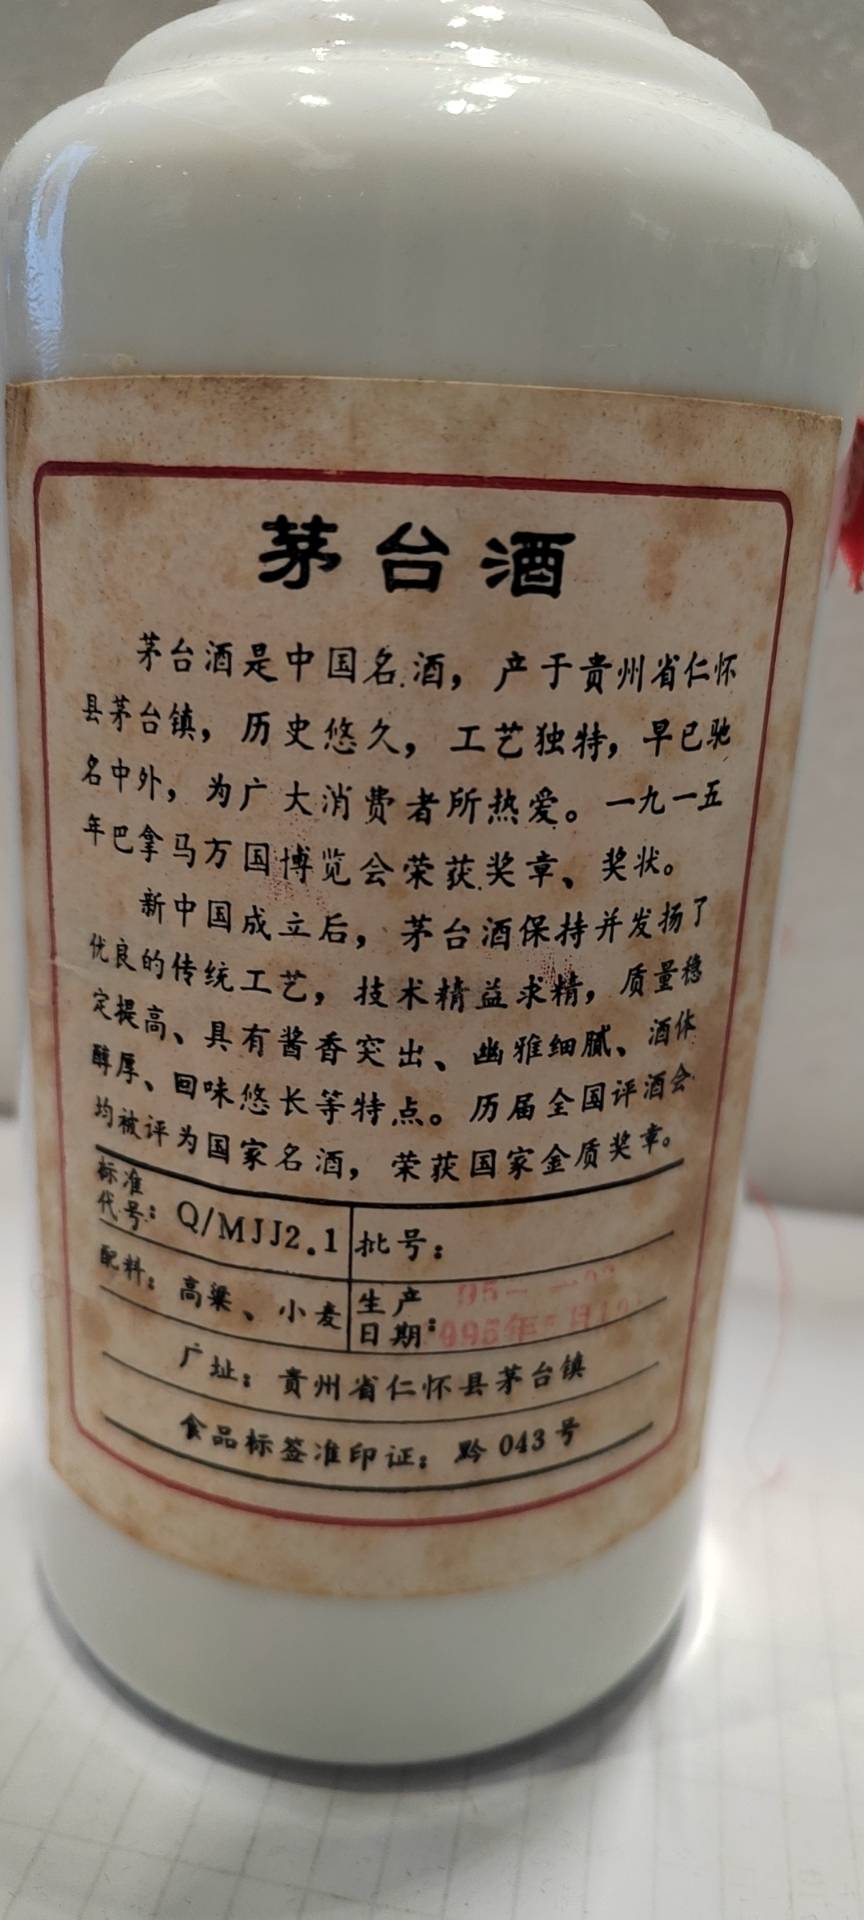 茅台酒
茅台酒是中国名酒，产于贵州省仁怀
县茅台镇，历史悠久，工艺独特，早已驰
名中外，为广大消费者所热爱。一九一五
年巴拿马万国博览会荣获奖章、奖状。
新中国成立后，茅台酒保持并发扬了
优良的传统工艺，技术精益求精，质量稳
定提高、具有酱香突出、幽雅细腻、酒体
醇厚、回味悠长等特点。历届全国评酒会
均被评为国家名酒，荣获国家金质奖章。
标准代号：Q/MJJ2.1
批号：
配料：高粱、小麦
生产日期：
995年
厂址：贵州省仁怀县茅台镇
食品标签准印证：黔043号